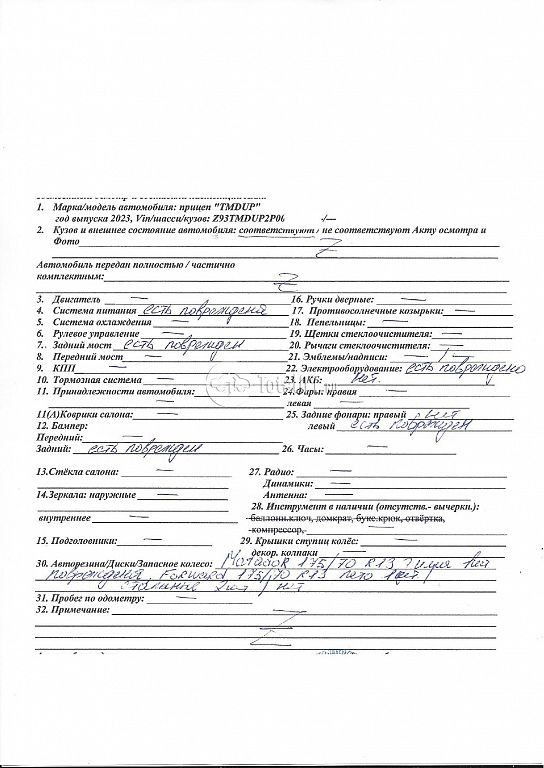 1. Марка/модель автомобиля: прицеп "TMDUP"
год выпуска 2023, Vin/шасси/кузов: Z93TMDUP2P06
2. Кузов и внешнее состояние автомобиля: соответствуют / не соответствуют Акту осмотра и
Фото
Автомобиль передан полностью / частично
комплектным:
3. Двигатель —
4. Система питания есть повреждения
5. Система охлаждения —
6. Рулевое управление —
7. Задний мост есть поврежден
8. Передний мост —
9. КПП —
10. Тормозная система —
11. Принадлежности автомобиля:
11(А)Коврики салона: —
12. Бампер:
Передний: —
Задний: есть поврежден
13.Стёкла салона: —
14.Зеркала: наружные —
внутреннее —
15. Подголовники: —
16. Ручки дверные: —
17. Противосолнечные козырьки: —
18. Пепельницы: —
19. Щетки стеклоочистителя: —
20. Рычаги стеклоочистителя: —
21. Эмблемы/надписи: —
22. Электрооборудование: есть повреждено
23. АКБ: нет.
24.Фары: правая —
левая —
25. Задние фонари: правый
левый есть поврежден
26. Часы: —
27. Радио: —
Динамики: —
Антенна: —
28. Инструмент в наличии (отсутств.- вычерки.):
-баллонн.ключ, домкрат, букс.крюк, отвёртка,
-компрессор,
29. Крышки ступиц колёс: —
декор. колпаки —
30. Авторезина/Диски/Запасное колесо: Matador 175/70 R13
повреждения. Forward 175/70 R13 лето 1 шт /
31. Пробег по одометру: —
32. Примечание: